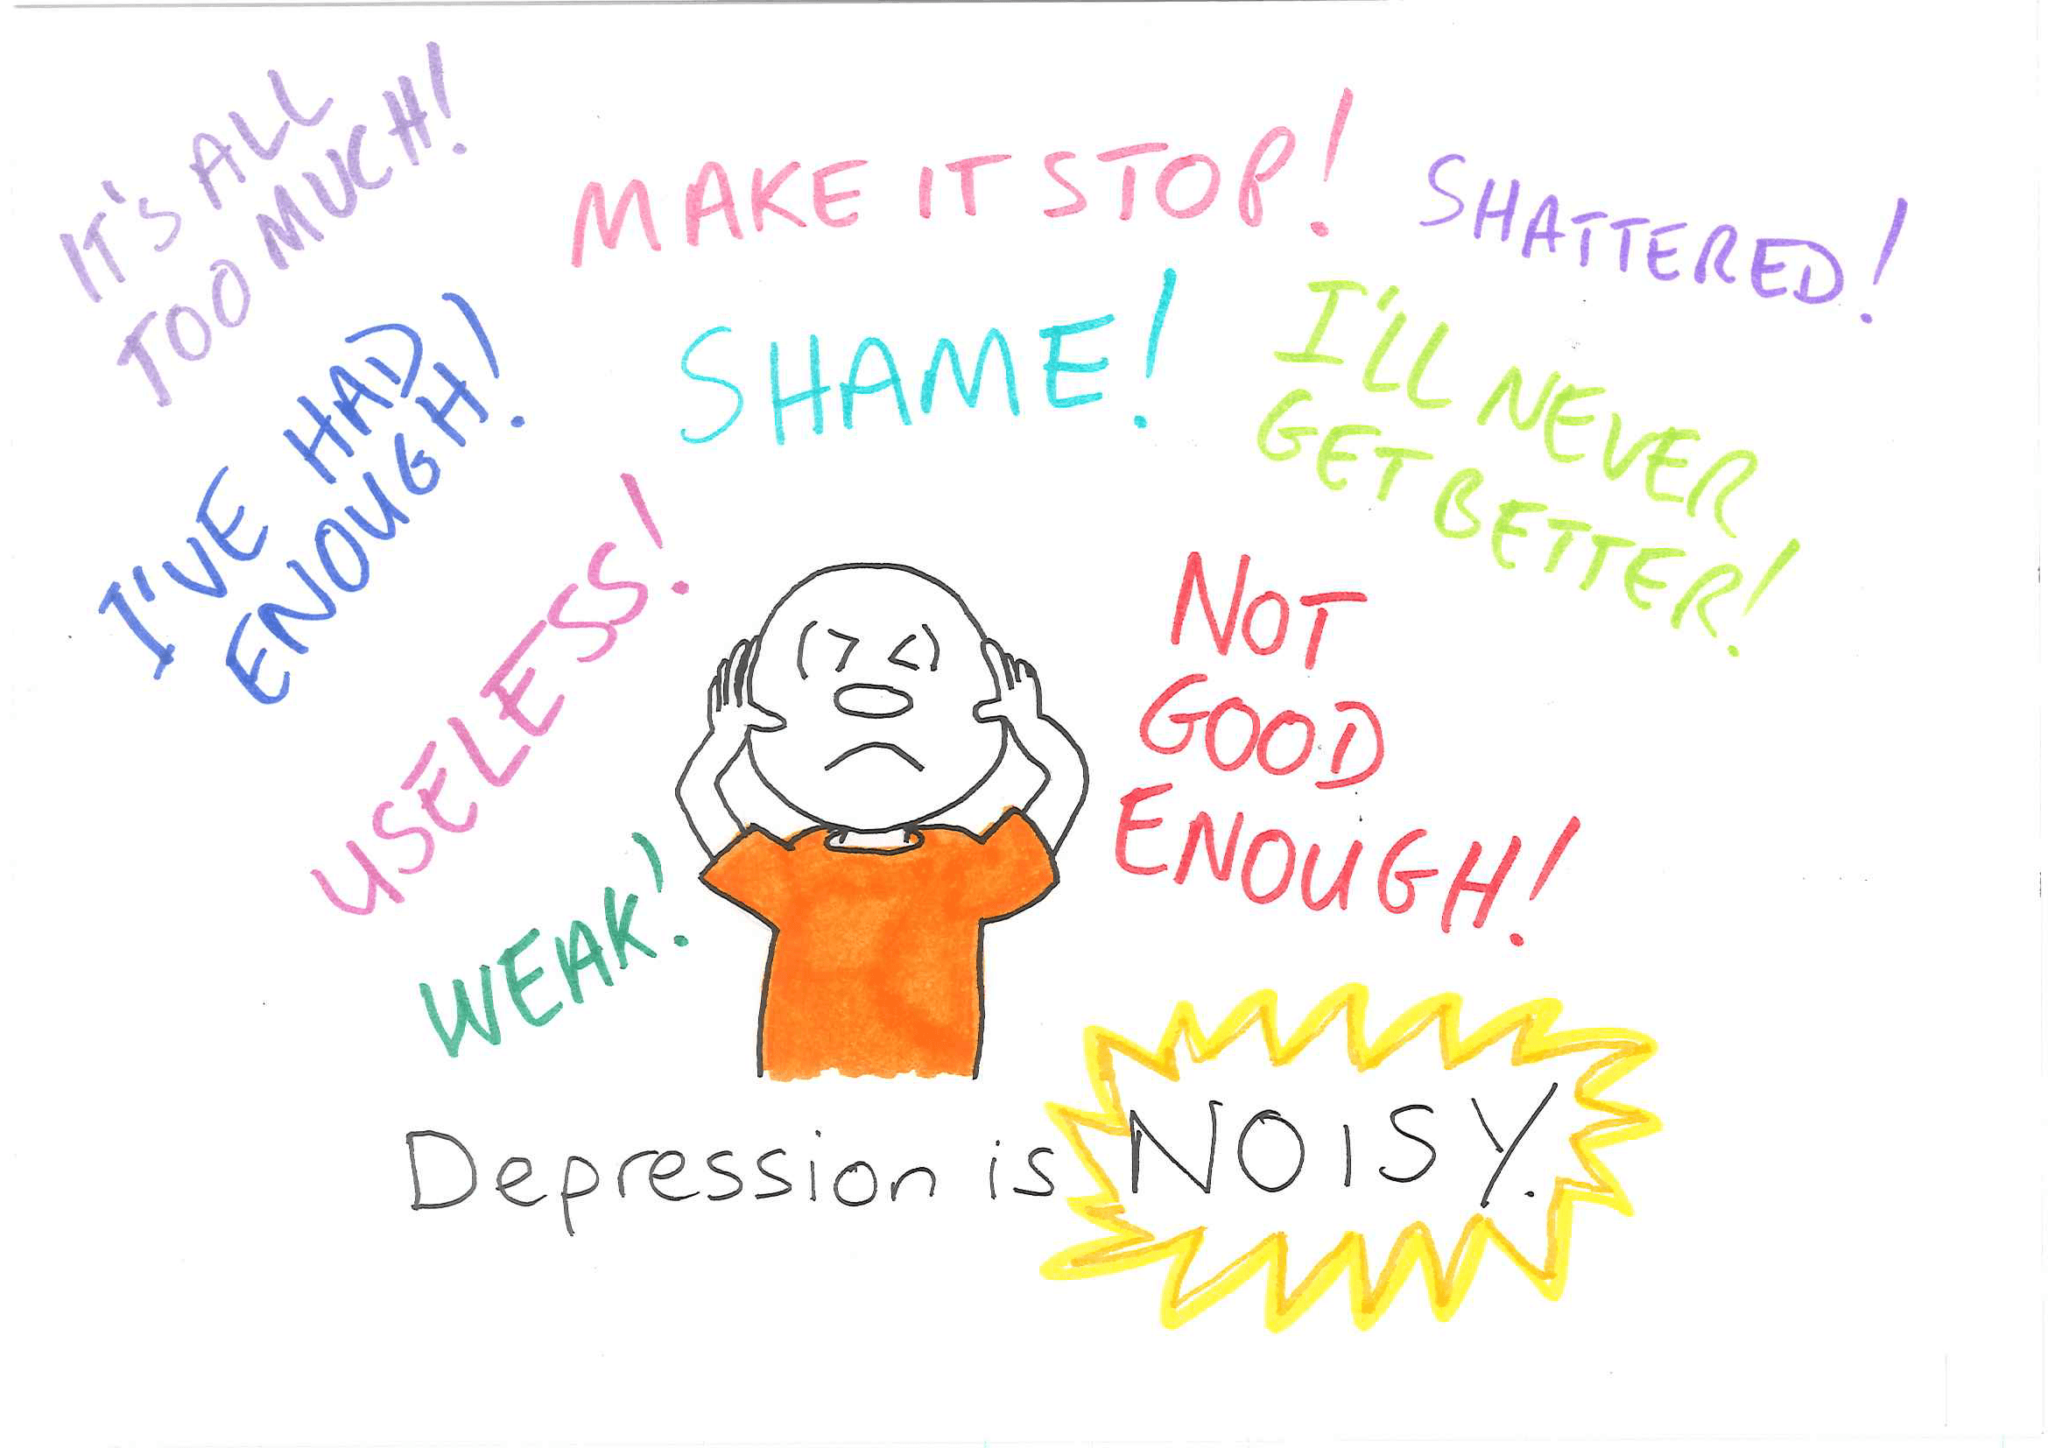 IT'S ALL
TOO MUCH!
MAKE IT STOP!
SHATTERED!
I'VE HAD
ENOUGH!
SHAME!
I'LL NEVER
GET BETTER!
USELESS!
NOT
GOOD
ENOUGH!
WEAK!
Depression is NOISY.